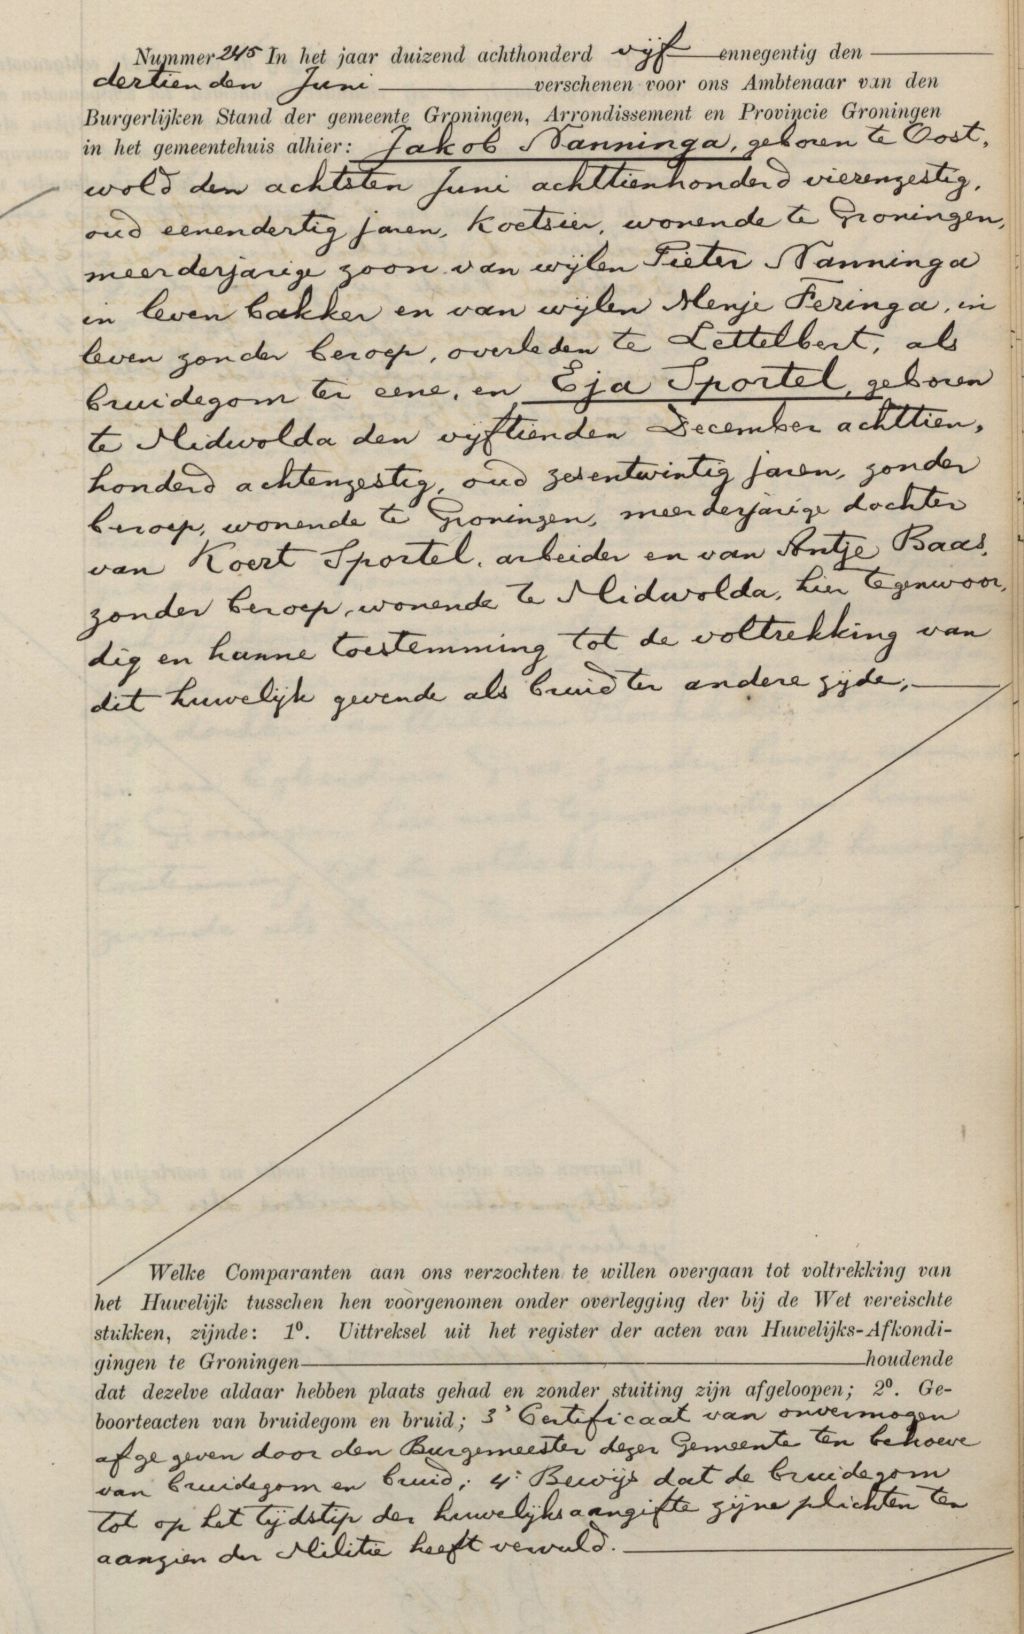 Nummer 245 In het jaar duizend achthonderd vijf ennegentig den
dertienden Juni verschenen voor ons Ambtenaar van den
Burgerlijken Stand der gemeente Groningen, Arrondissement en Provincie Groningen
in het gemeentehuis alhier: Jakob Nanninga, geboren te Oost,
wold den achtsten Juni achttienhonderd vierenzestig,
oud eenendertig jaren, koetsier, wonende te Groningen,
meerderjarige zoon van wijlen Pieter Nanninga
in leven bakker en van wijlen Menje Feringa, in
leven zonder beroep, overleden te Lettelbert, als
bruidegom ter eene, en Eja Sportel, geboren
te Midwolda den vijftienden December achttien,
honderd achtenzestig, oud zesentwintig jaren, zonder
beroep, wonende te Groningen, meerderjarige dochter
van Koert Sportel, arbeider en van Antje Baas,
zonder beroep, wonende te Midwolda, hier tegenwoor,
dig en hunne toestemming tot de voltrekking van
dit huwelijk gevende als bruid ter andere zijde,
Welke Comparanten aan ons verzochten te willen overgaan tot voltrekking van
het Huwelijk tusschen hen voorgenomen onder overlegging der bij de Wet vereischte
stukken, zijnde: 1⁰. Uittreksel uit het register der acten van Huwelijks-Afkondi-
gingen te Groningen houdende
dat dezelve aldaar hebben plaats gehad en zonder stuiting zijn afgeloopen; 2⁰. Ge-
boorteacten van bruidegom en bruid; 3° Certificaat van onvermogen
afgegeven door den Burgemeester dezer Gemeente ten behoeve
van bruidegom en bruid; 4° Bewijs dat de bruidegom
tot op het tijdstip der huwelijksaangifte zijne plichten ten
aanzien der Militie heeft vervuld.